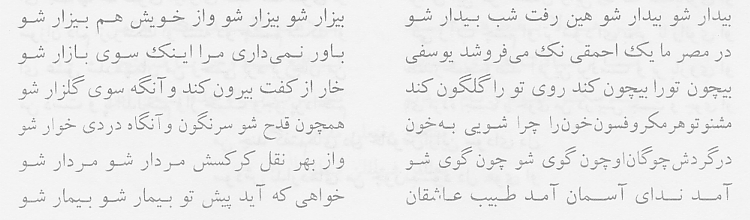 بیدار شو بیدار شو هین رفت شب بیدار شو
بیزار شو بیزار شو واز خویش هم بیزار شو
در مصر ما یک احمقی نک می‌فروشد یوسفی
باور نمی‌داری مرا اینک سوی بازار شو
بیچون تو را بیچون کند روی تو را گلگون کند
خار از کفت بیرون کند وآنگه سوی گلزار شو
مشنو تو هر مکر و فسون خون را چرا شویی به خون
همچون قدح شو سرنگون وآنگاه دردی خوار شو
در گردش چوگان او چون گوی شو چون گوی شو
واز بهر نقل کرکسش مردار شو مردار شو
آمد ندای آسمان آمد طبیب عاشقان
خواهی که آید پیش تو بیمار شو بیمار شو